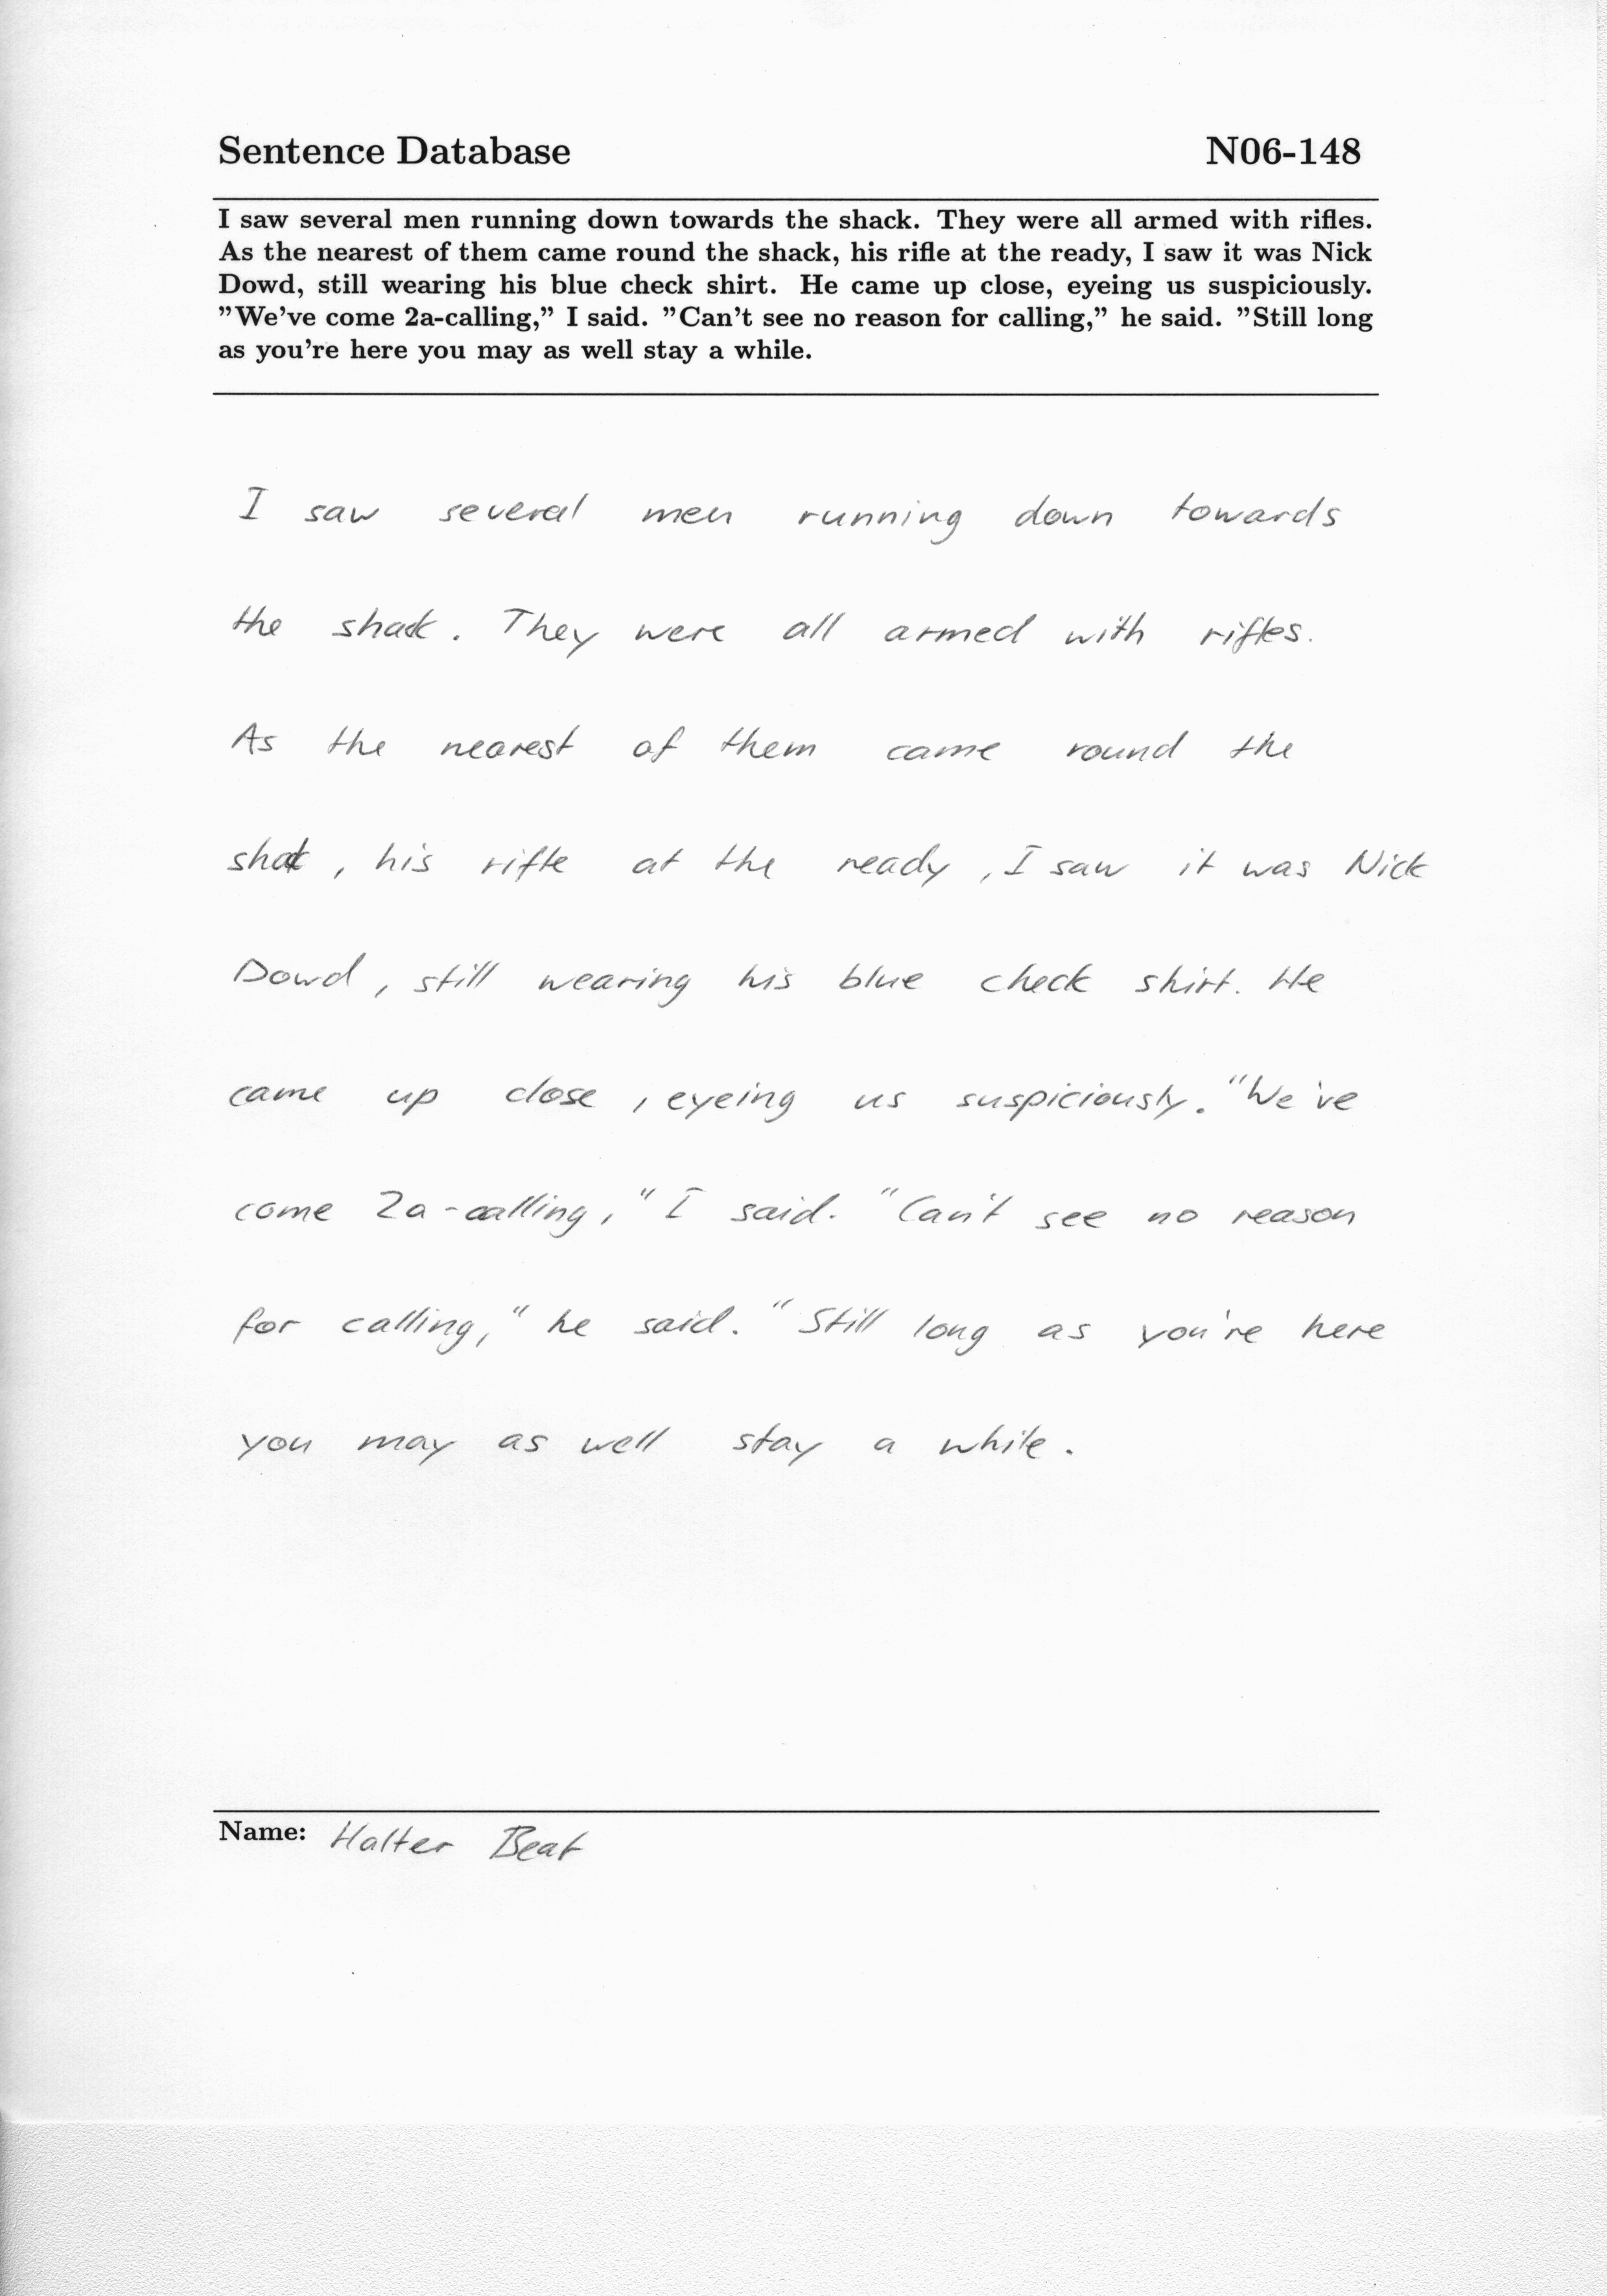 Sentence Database N06-148
I saw several men running down towards the shack. They were all armed with rifles.
As the nearest of them came round the shack, his rifle at the ready, I saw it was Nick
Dowd, still wearing his blue check shirt. He came up close, eyeing us suspiciously.
"We've come 2a-calling," I said. "Can't see no reason for calling," he said. "Still long
as you're here you may as well stay a while.
I saw several men running down towards
the shack. They were all armed with rifles.
As the nearest of them came round the
shack, his rifle at the ready, I saw it was Nick
Dowd, still wearing his blue check shirt. He
came up close, eyeing us suspiciously. "We've
come 2a-calling," I said. "Can't see no reason
for calling," he said. "Still long as you're here
you may as well stay a while.
Name: Halter Beat